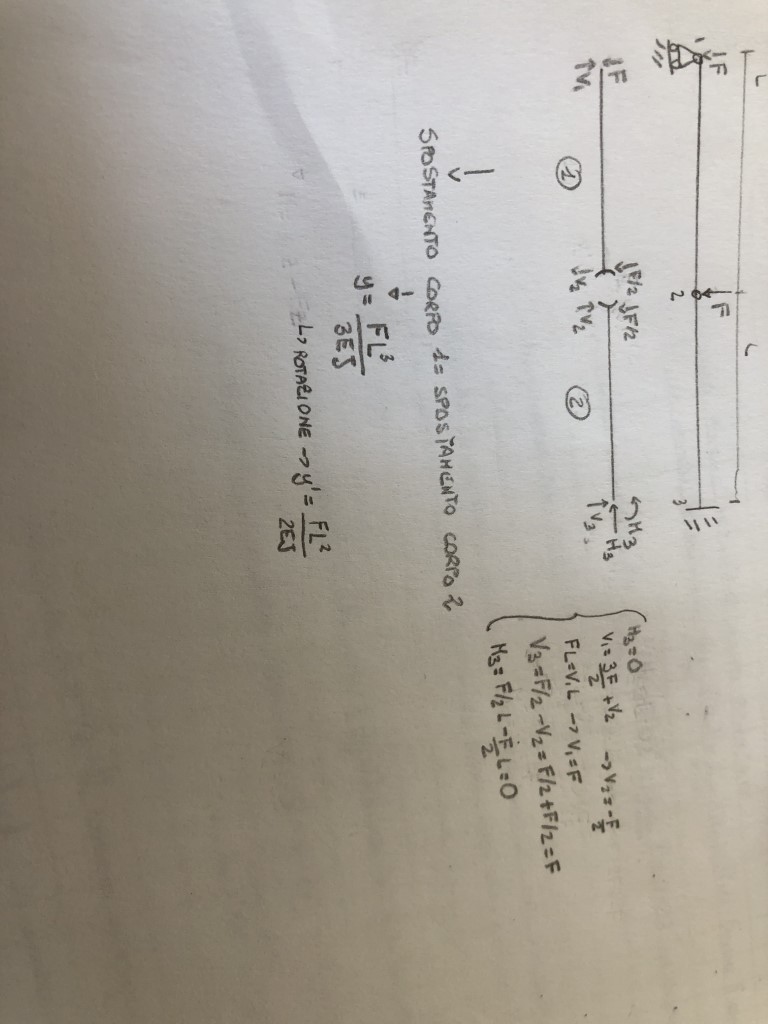 L L
1 ↓F ↓F 2 3
↓F ↓F/2 ↓F/2 M3
↑V1 ① ↓V2 ↑V2 ② ↑V3 H3
H3=0
V1=3F/2+V2 → V2=-F/2
FL=V1L → V1=F
V3=F/2-V2=F/2+F/2=F
M3=F/2 L-F/2 L=0
SPOSTAMENTO CORPO 1= SPOSTAMENTO CORPO 2
y= FL³/3EJ
↳ ROTAZIONE → y'= FL²/2EJ